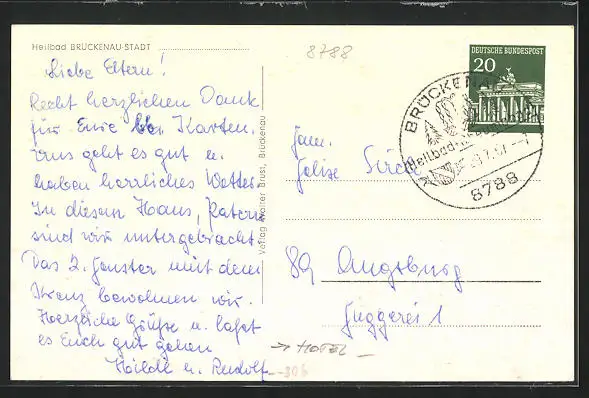 Heilbad BRÜCKENAU-STADT
8788
Liebe Eltern!
Recht herzlichen Dank
für Eure Karten.
Uns geht es gut u.
haben herrliches Wetter.
In diesem Haus,
sind wir untergebracht.
Das 2. Fenster mit dem
Kreuz bewohnen wir.
Herzliche Grüße u. laßt
es Euch gut gehen
Hilde u. Rudolf
Verlag Walter Brust, Brückenau
DEUTSCHE BUNDESPOST
20
BRÜCKENAU
Heilbad
8788
Fam.
89 Augsburg
Fuggerei 1
→ HOTEL -